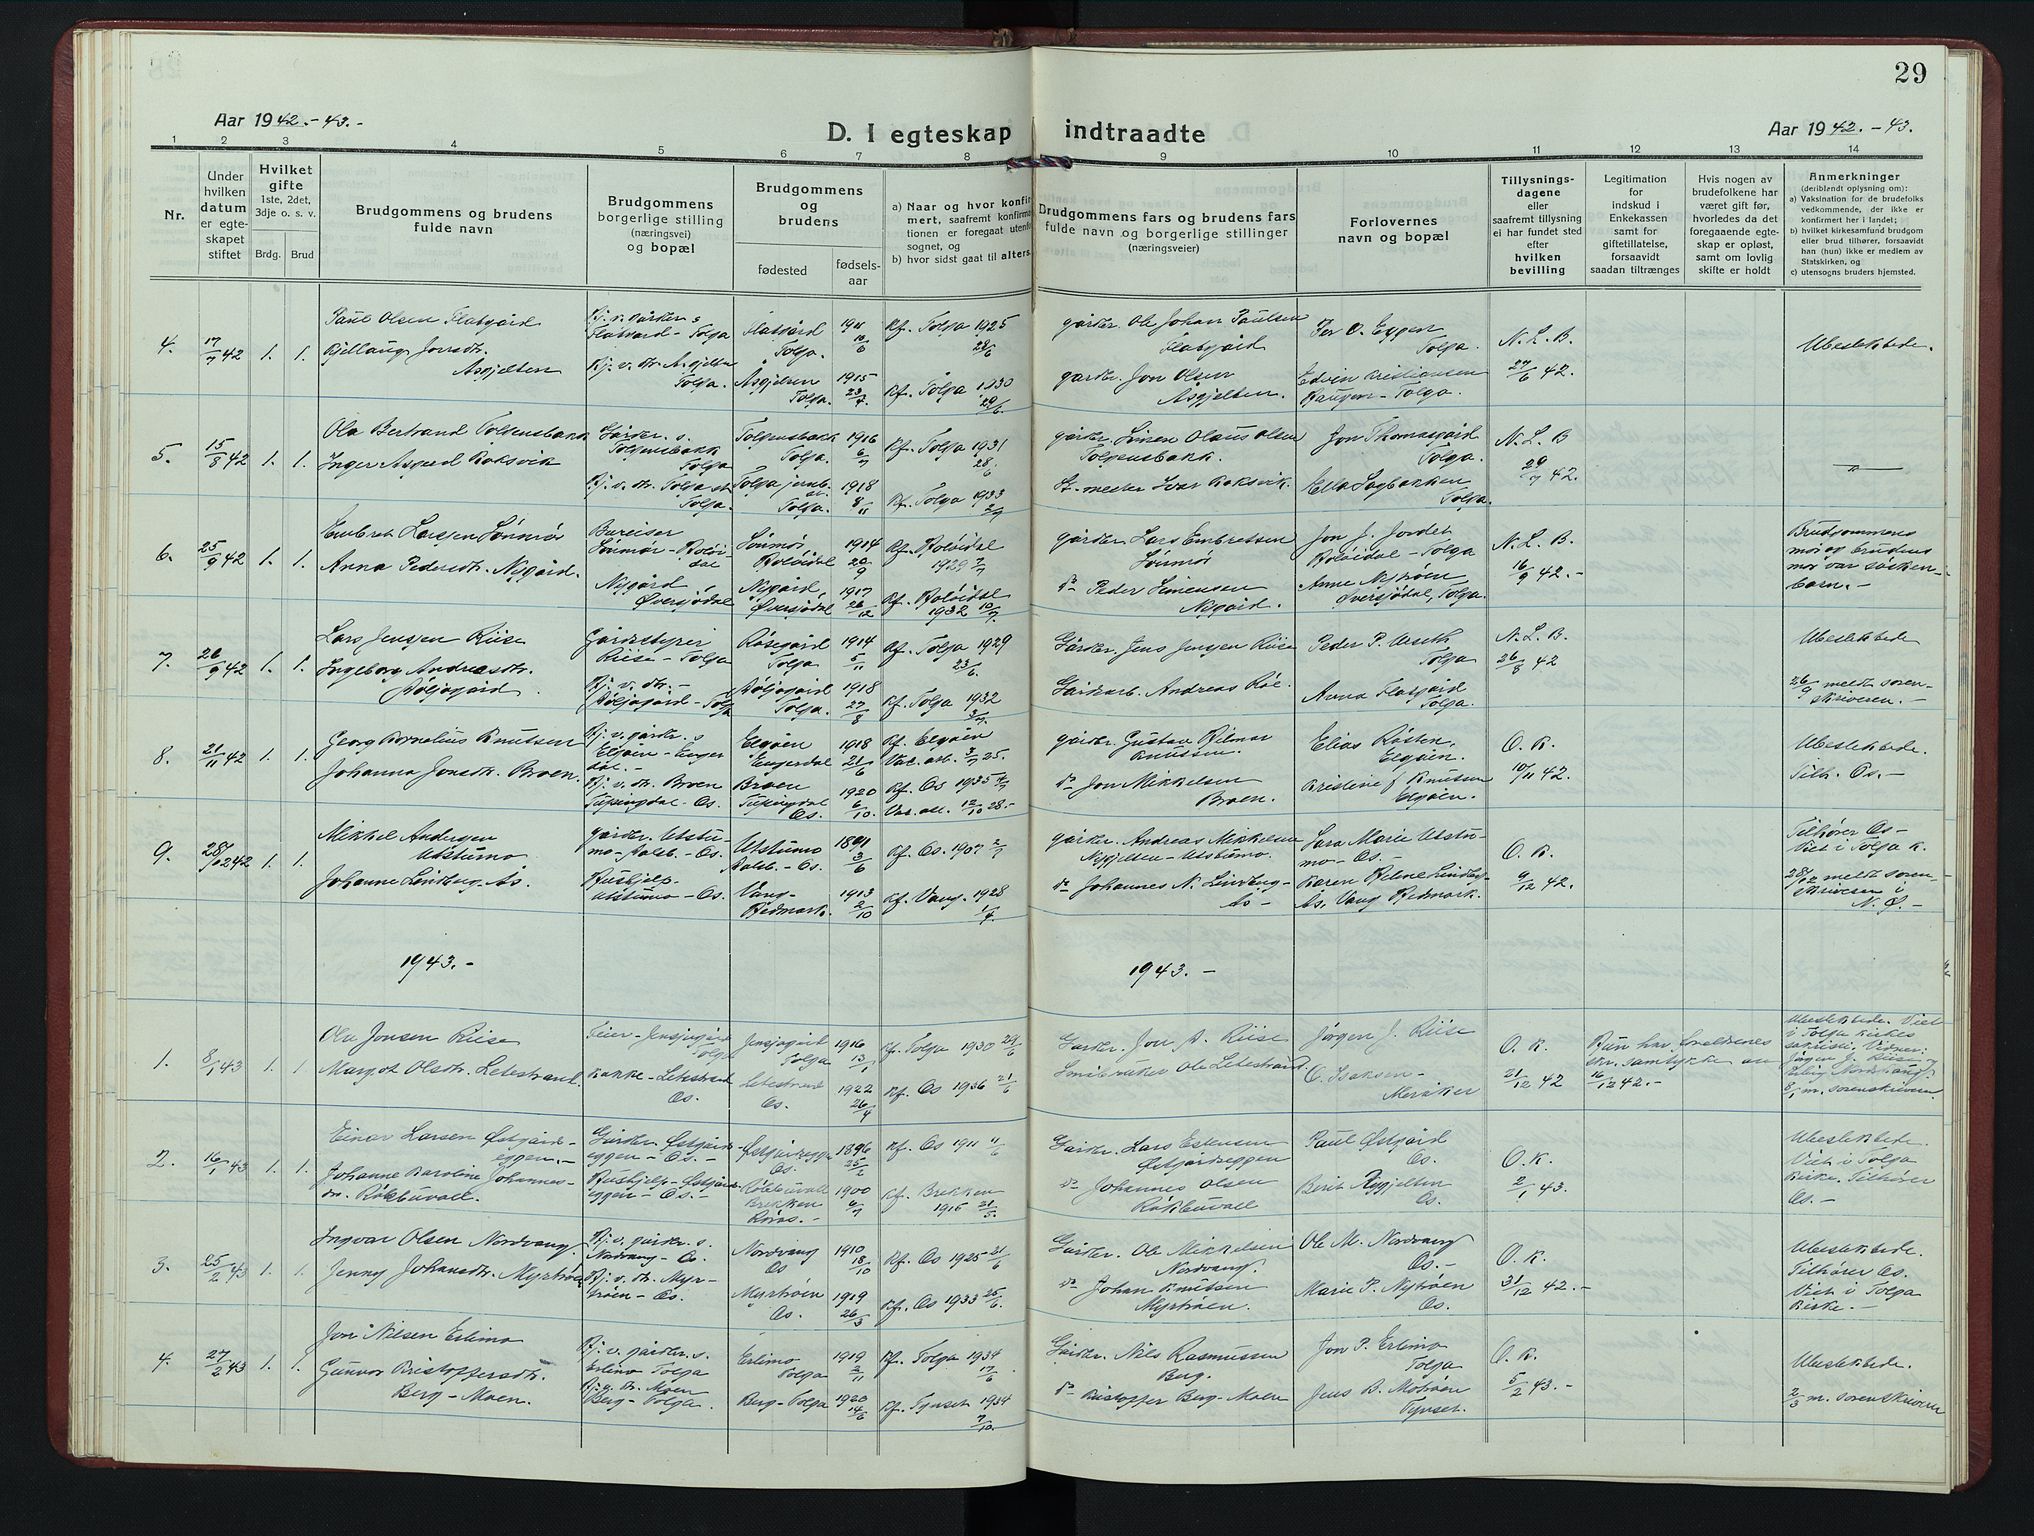 29
Aar 1942.-43.-
D. I egteskap indtraadte
Aar 1942.-43.
1 2 3 4 5 6 7 8 9 10 11 12 13 14
Nr.
Under
hvilken
datum
er egte-
skapet
stiftet
Hvilket
gifte
1ste, 2det,
3dje o. s. v.
Brdg. Brud
Brudgommens og brudens
fulde navn
Brudgommens
borgerlige stilling
(næringsvei)
og bopæl
Brudgommens
og
brudens
fødested
fødsels-
aar
a) Naar og hvor konfir
mert, saafremt konfirma
tionen er foregaat utenfo
sognet, og
b) hvor sidst gaat til alters.
Brudgommens fars og brudens fars
fulde navn og borgerlige stillinger
(næringsveier)
Forlovernes
navn og bopæl
Tillysnings-
dagene
eller
saafremt tillysning
ei har fundet sted
efter
hvilken
bevilling
Legitimation
for
indskud i
Enkekassen
samt for
giftetillatelse,
forsaavidt
saadan tiltrænges
Hvis nogen av
brudefolkene har
været gift før,
hvorledes da det
foregaaende egte-
skap er opløst,
samt om lovlig
skifte er holdt
Anmerkninger
(deriblendt oplysning om):
a) Vaksination for de brudefolks
vedkommende, der ikke er
konfirmert her i landet;
b) hvilket kirkesamfund brudgom
eller brud tilhører, forsaavidt
han (hun) ikke er medlem av
Statskirken, og
c) utensogns bruders hjemsted.
4. 17/7 42 1. 1.
Paul Olsen Flatgård
Kjellaug Jonsdtr.
Asgjelten
Hj. v. gårdbr. s.
Flatgård - Tolga
Hj. v. dtr. Asgjelten
Tolga.
Flatgård
Tolga.
1911
10/6
Asgjelten
Tolga.
1915
23/4
Kf. Tolga 1925
28/6
Kf. Tolga 1930
29/6
gårdbr. Ole Johan Paulsen
Flatgård
gårdbr. Jon Olsen
Asgjelten.
Per O. Eggen
Tolga.
Edvin Kristiansen
Haugen - Tolga.
N. L. B.
27/6 42.
Ubeslektede.
5. 15/8 42 1. 1.
Ola Bertrand Tolgensbakk
Inger Asgerd Roksvik
Gårdbr. s.
Tolgensbakk
Tolga
Hj. v. dtr. Tolga st.
Tolga.
Tolgensbakk
Tolga.
1916
6/7
Tolga jernb.
st.
Tolga.
1918
8/11
Kf. Tolga 1931
28/6
Kf. Tolga 1933
2/7
gårdbr. Simen Olaus Olsen
Tolgensbakk.
St. mester Ivar Roksvik.
Jon Thomasgård
Tolga.
Ella Sagbakken
Tolga.
N. L. B
29/7 42.
— " —
6. 25/9 42 1. 1.
Embret Larsen Sønmør
Anna Pedersdtr. Nygård.
Bureiser
Sønmør - Holøi-
dal
Nygård,
Øversjødal
Sønmør
Holøidal
1914
20/9
Nygård,
Øversjødal
1917
26/12
Kf. Holøidal
1929 7/7
Kf. Holøidal
1932 10/7.
gårdbr. Lars Embretsen
Sønmør
do Peder Simensen
Nygård.
Jon J. Jordet
Holøidal - Tolga
Anne Nystrøm,
Øversjødal, Tolga.
N. L. B.
16/9 42.-
Brudgommens
mor og brudens
mor var søsken-
barn.-
7. 26/9 42 1. 1.
Lars Jensen Riise
Ingeborg Andreasdtr.
Røljogård
Gårdstyrer
Riise - Tolga
Hj. v. dtr. -
Røljogård - Tol
ga
Røsegård
Tolga
1914
5/11
Røljogård
Tolga.
1918
27/8
Kf. Tolga 1929
23/6
Kf. Tolga 1932
3/7.
Gårdbr. Jens Jensen Riise
Gårdarb. Andreas Røe.
Peder P. Aaseth
Tolga
Anna Flatgård
Tolga.
N. L. B.
26/8 42
Ubeslektede
26/9 meldt soren-
skriveren.-
8. 21/11 42 1. 1.
Georg Kornelius Knutsen
Johanna Jonsdtr. Broen.
Hj. v. gårdbr. s
Elgåen - Enger
dal.-
Hj. v. dtr. Broen
Tufsingdal - Os.
Elgåen
Engerdal
1918
21/6
Broen
Tufsingdal
Os.
1920
6/10.
Kf. Elgåen
Vac. att. 3/7 25.
Kf. Os 1935 14/7
Vac. att. 12/10 28.-
gårdbr. Gustav Hilmar
Knutsen.
do Jon Mikkelsen
Broen.
Elias Røsten,
Elgåen.
Kristine J Knutsen
Elgåen.
O. K.
10/11 42.
Ubeslektede.
Tilh. Os.-
9. 28/12 42 1. 1.
Mikkel Andersen
Utstumo
Johanne Lindberg Ås.
gårdbr. Utstu-
mo - Dalsb. - Os.
Hushjelp -
Utstumo - Os.
Utstumo
Dalsb. - Os.
1891
3/6
Vang -
Hedmark.
1913
2/10
Kf. Os. 1907 2/7
Kf. Vang. 1928
1/7
gårdbr. Andreas Mikkelsen
Nygjelten - Utstumo.
do Johannes N. Lindberg -
Ås -
Lars Marie Utstu-
mo - Os. -
Karen Helene Lindberg
Ås, Vang Hedmark.
O. K.
9/12 42.
Tilhører Os -
Viet i Tolga k.
28/12 meldt soren-
skriveren i
N. Ø. -
1943. - 1943. -
1. 8/1 43 1. 1
Ola Jonsen Riise
Margot Olsdtr. Lebestrand.
Feier - Jensjogård
Tolga
Kokke - Lebestrand
Os.
Jensjogård
Tolga
1916
13/1
Lebestrand
Os.
1922
26/4
Kf. Tolga 1930 29/6
Kf. Os 1936 21/6
Gårdbr. Jon A. Riise
Småbruker Ole Lebestrand.
Jørgen J. Riise
O. Isaksen -
Meråker
O. K.
21/12 42
Hun har foreldrenes
skr. samtykke av
16/12 42.-
Ubeslektede. Viet
i Tolga kirkes
sakristi. Vidner:
Jørgen J. Riise og
Erling Nordvang.
8/1 m. sorenskriveren
2. 16/1 43 1. 1.
Einar Larsen Østgårds-
eggen.-
Johanne Karoline Johannes-
dtr. Røkbuvoll.
Gårdbr. Østgårds-
eggen - Os. -
Hushjelp - Østgårds-
eggen - Os. -
Østgårdseggen
Os.
1896
25/2
Røkbuvoll
Brekken
Røros.-
1900
6/7
Kf. Os 1911 11/6
Kf. Brekken
1915 21/5.
Gårdbr. Lars Estensen
Østgårdseggen
do Johannes Olsen
Røkbuvoll
Paul Østgård
Os.
Berit Nygjelten
Os.
O. K.
2/1 43.
Ubeslektede.
Viet i Tolga
kirke. Tilhører
Os.-
3. 25/2 43 1. 1.
Ingvar Olsen Nordvang.
Jenny Johansdtr. Myrtrøen
Hj. v. gårdbr. s.
Nordvang - Os.
Hj. v. dtr. Myr-
trøen - Os.
Nordvang
Os
1910
18/10
Myrtrøen
Os.
1919
26/3
Kf. Os 1925 21/6
Kf. Os 1933 25/6.
Gårdbr. Ole Mikkelsen
Nordvang.
do Johan Knutsen
Myrtrøen.
Ole M. Nordvang
Os.-
Marie P. Nytrøen
Os.
O. K.
31/12 42.-
Ubeslektede.
Tilhører Os.
Viet i Tolga
kirke.-
4. 27/2 43 1. 1.
Jon Nilsen Erlimo
Gunvor Kristoffersdtr.
Berg - Moen.
Hj. v. gårdbr. s.
Erlimo Tolga
Hj. v. dtr. Moen
Berg - Tolga.
Erlimo
Tolga
1919
2/11
Berg - Tolga
1920
14/6
Kf. Tolga 1934
17/6
Kf. Tynset 1934
7/10.
Gårdbr. Nils Rasmussen
Berg.
do Kristoffer Berg - Moen
Jon P. Erlimo
Tolga
Jens B. Motrøen
Tynset.
O. K.
5/2 43.-
Ubeslektede.
2/3 m. sorenskriveren